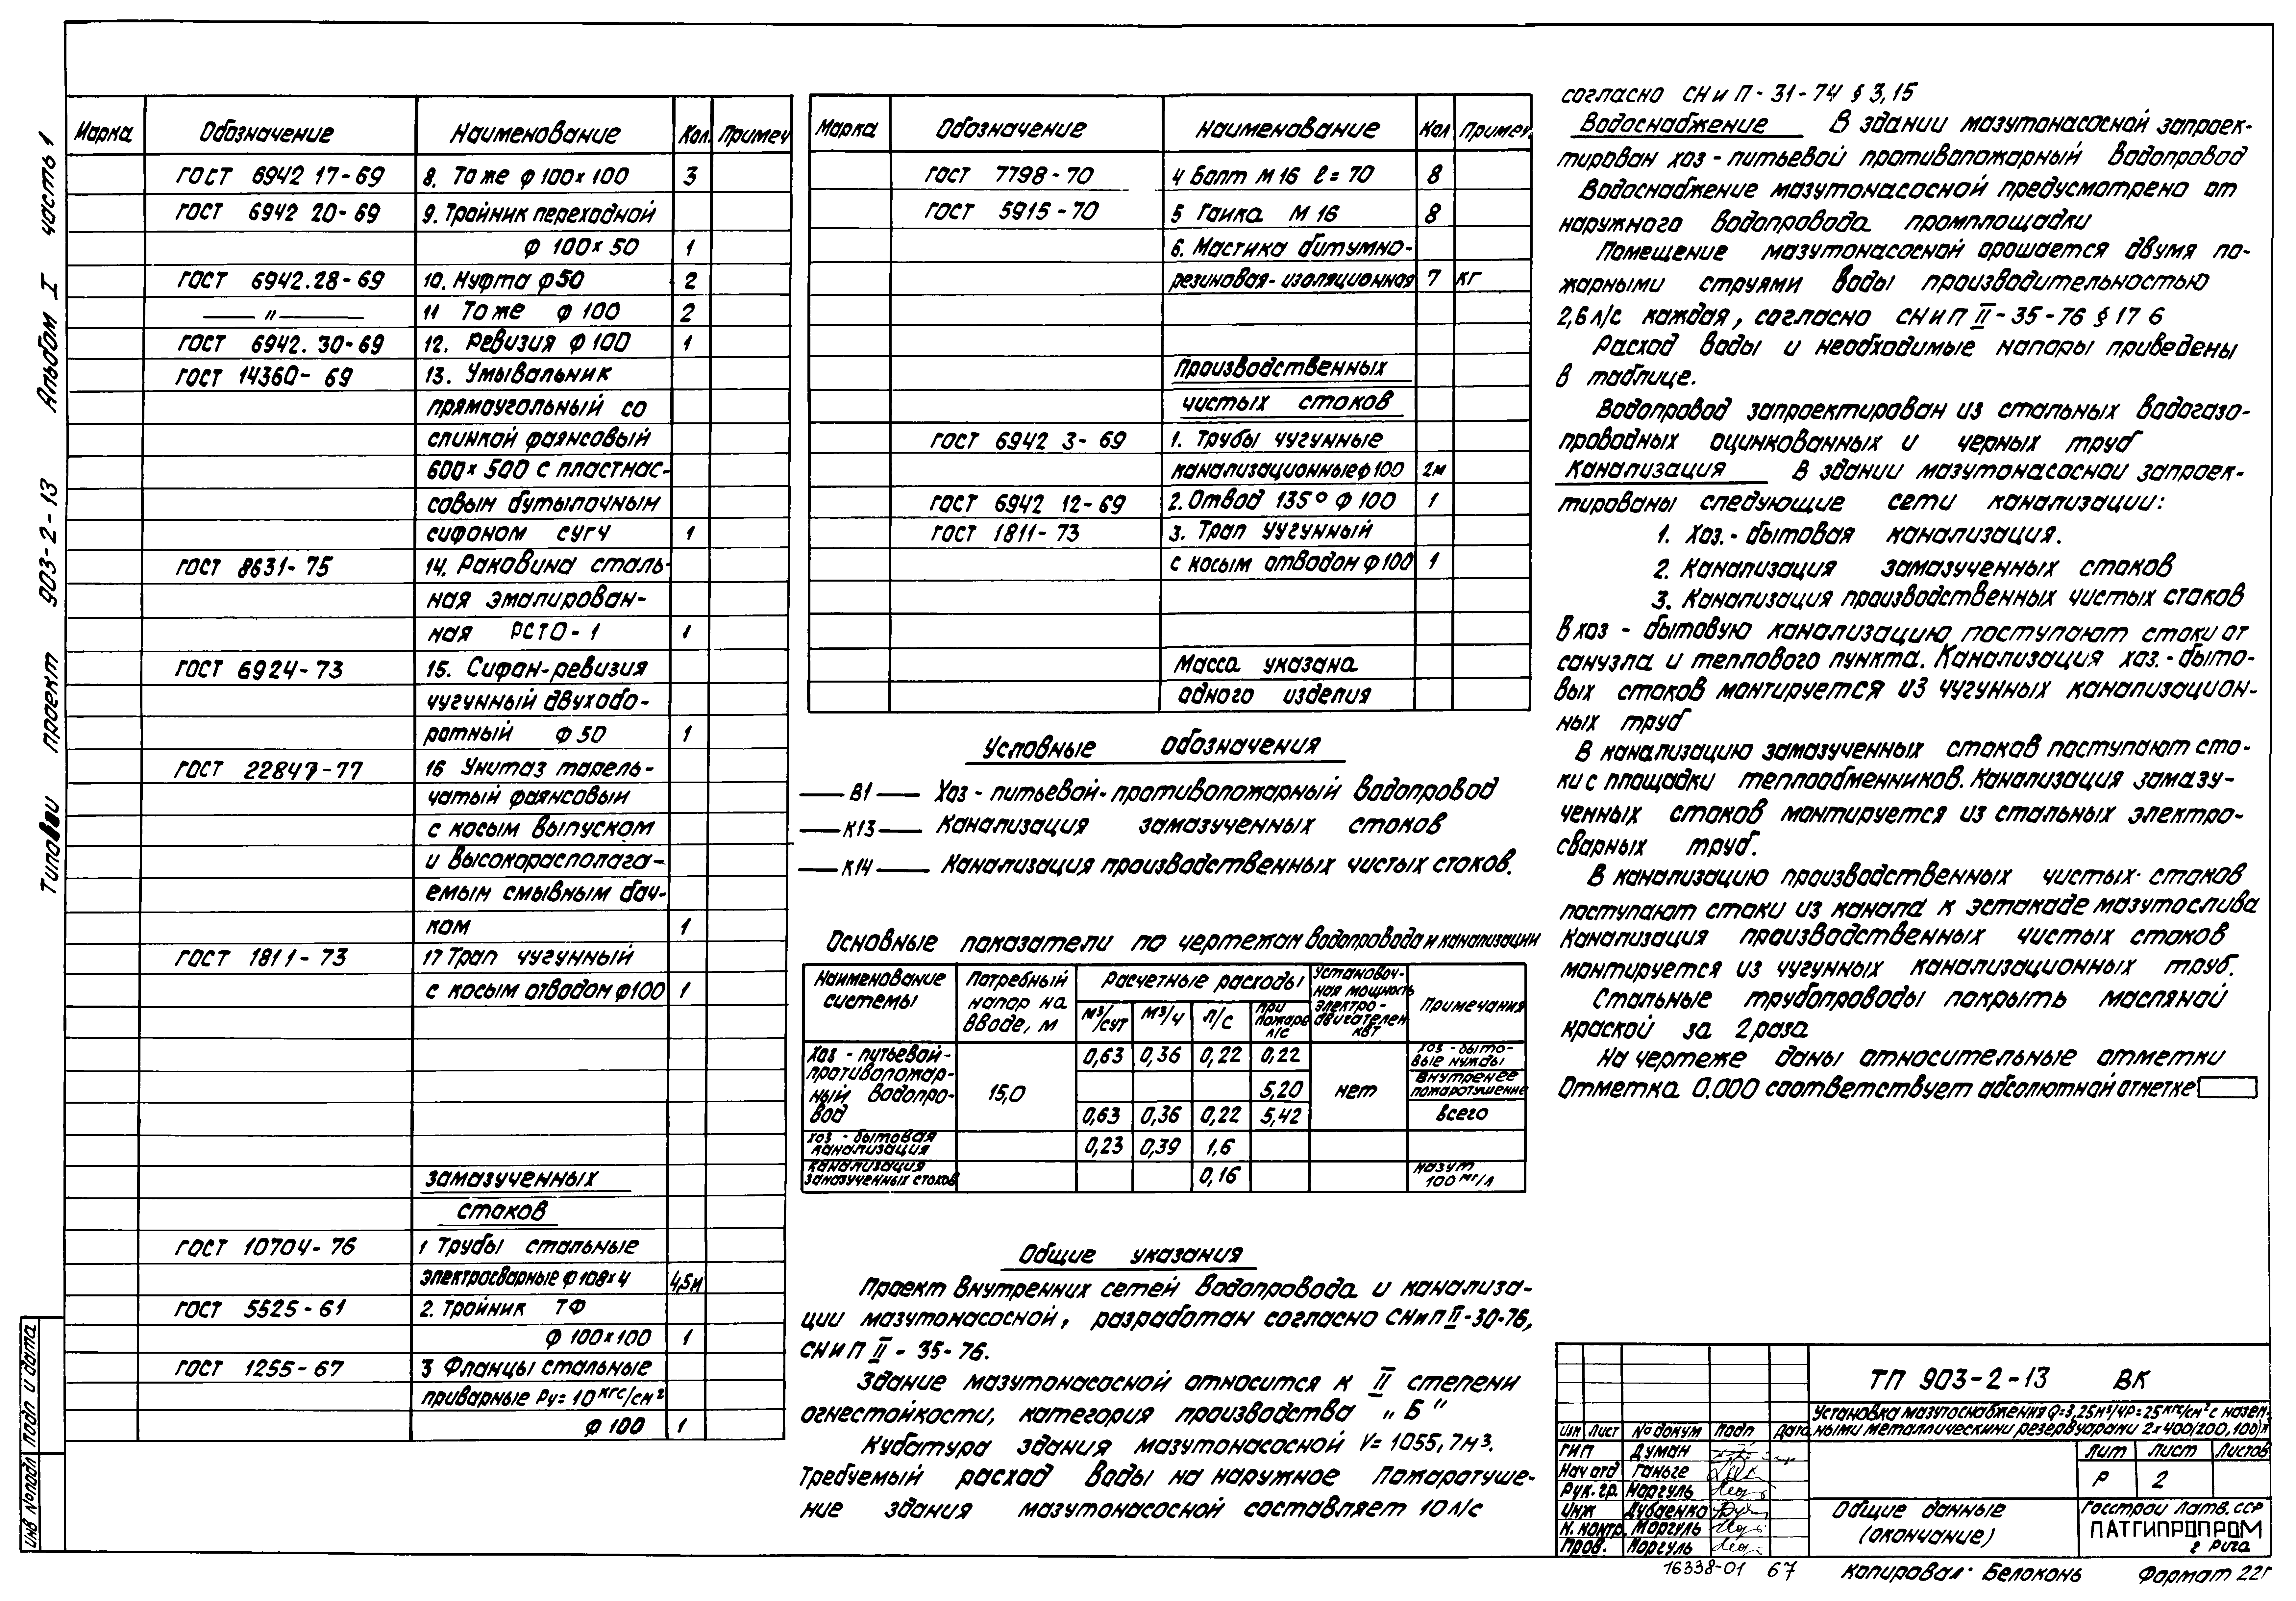 Типовой проект 903-2-13 Альбом I часть 1
Марка Обозначение Наименование Кол. Примеч
ГОСТ 6942 17-69 8. То же φ 100х100 3
ГОСТ 6942 20-69 9. Тройник переходной
φ 100х50 1
ГОСТ 6942.28-69 10. Муфта φ50 2
— " — 11 То же φ 100 2
ГОСТ 6942.30-69 12. Ревизия φ100 1
ГОСТ 14360-69 13. Умывальник
прямоугольный со
спинкой фаянсовый
600х500 с пластмас-
совым бутылочным
сифоном СУГЧ 1
ГОСТ 8631-75 14. Раковина сталь-
ная эмалирован-
ная РСТО-1 1
ГОСТ 6924-73 15. Сифон-ревизия
чугунный двухобо-
ротный φ50 1
ГОСТ 22847-77 16 Унитаз тарель-
чатый фаянсовый
с косым выпуском
и высокорасполага-
емым смывным бач-
ком 1
ГОСТ 1811-73 17 Трап чугунный
с косым отводом φ100 1
замазученных
стоков
ГОСТ 10704-76 1 Трубы стальные
электросварные φ108х4 4,5м
ГОСТ 5525-61 2. Тройник ТФ
φ 100х100 1
ГОСТ 1255-67 3 Фланцы стальные
приварные Ру=10 кгс/см²
φ 100 1
Марка Обозначение Наименование Кол Примеч.
ГОСТ 7798-70 4 Болт М16 ℓ=70 8
ГОСТ 5915-70 5 Гайка М16 8
6. Мастика битумно-
резиновая-изоляционная 7 кг
Производственных
чистых стоков
ГОСТ 6942 3-69 1. Трубы чугунные
канализационные φ100 2м
ГОСТ 6942 12-69 2. Отвод 135° φ100 1
ГОСТ 1811-73 3. Трап чугунный
с косым отводом φ100 1
Масса указана
одного изделия
Условные обозначения
— В1 — Хоз-питьевой-противопожарный водопровод
— К13 — Канализация замазученных стоков
— К14 — Канализация производственных чистых стоков.
Основные показатели по чертежам водопровода и канализации
Наименование системы Потребный напор на вводе, м Расчетные расходы Установоч-ная мощность электро-двигателей квт Примечания
м³/сут м³/ч л/с при пожаре л/с
Хоз-питьевой-противопожар-ный водопро-вод 15,0 0,63 0,36 0,22 0,22 нет Хоз-быто-вые нужды
5,20 Внутренее пожаротушение
0,63 0,36 0,22 5,42 всего
Хоз-бытовая канализация 0,23 0,39 1,6
Канализация замазученных стоков 0,16 мазут 100 мг/л
Общие указания
Проект внутренних сетей водопровода и канализа-
ции мазутонасосной, разработан согласно СНиП II-30-76,
СНиП II-35-76.
Здание мазутонасосной относится к II степени
огнестойкости, категория производства „Б"
Кубатура здания мазутонасосной V=1055,7м³.
Требуемый расход воды на наружное пожаротуше-
ние здания мазутонасосной составляет 10л/с
согласно СНиП-31-74 § 3,15
Водоснабжение В здании мазутонасосной запроек-
тирован хоз-питьевой противопожарный водопровод
Водоснабжение мазутонасосной предусмотрено от
наружного водопровода промплощадки
Помещение мазутонасосной орошается двумя по-
жарными струями воды производительностью
2,6л/с каждая, согласно СНиП II-35-76 § 17 6
Расход воды и необходимые напоры приведены
в таблице.
Водопровод запроектирован из стальных водогазо-
проводных оцинкованных и черных труб
Канализация В здании мазутонасосной запроек-
тированы следующие сети канализации:
1. Хоз.-бытовая канализация.
2. Канализация замазученных стоков
3. Канализация производственных чистых стоков
В хоз-бытовую канализацию поступают стоки от
санузла и теплового пункта. Канализация хоз.-быто-
вых стоков монтируется из чугунных канализацион-
ных труб
В канализацию замазученных стоков поступают сто-
ки с площадки теплообменников. Канализация замазу-
ченных стоков монтируется из стальных электро-
сварных труб.
В канализацию производственных чистых стоков
поступают стоки из канала к эстакаде мазутослива
Канализация производственных чистых стоков
монтируется из чугунных канализационных труб.
Стальные трубопроводы покрыть масляной
краской за 2 раза
На чертеже даны относительные отметки
Отметка 0.000 соответствует абсолютной отметке
ТП 903-2-13 ВК
Установка мазутоснабжения Q=3,25м³/ч P=25кгс/см² с назем-
ными металлическими резервуарами 2х400(200,100)м³
Изм Лист № докум Подп Дата
ГИП Думан
Нач отд Ганьге
Рук.гр. Моргуль
Инж Дубаенко
Н.контр. Моргуль
Пров. Моргуль
Лит Лист Листов
Р 2
Общие данные
(окончание)
Госстрой Латв.ССР
ЛАТГИПРОПРОМ
г Рига
16338-01 67
Копировал: Белоконь Формат 22Г
Инв № подл Подп и дата